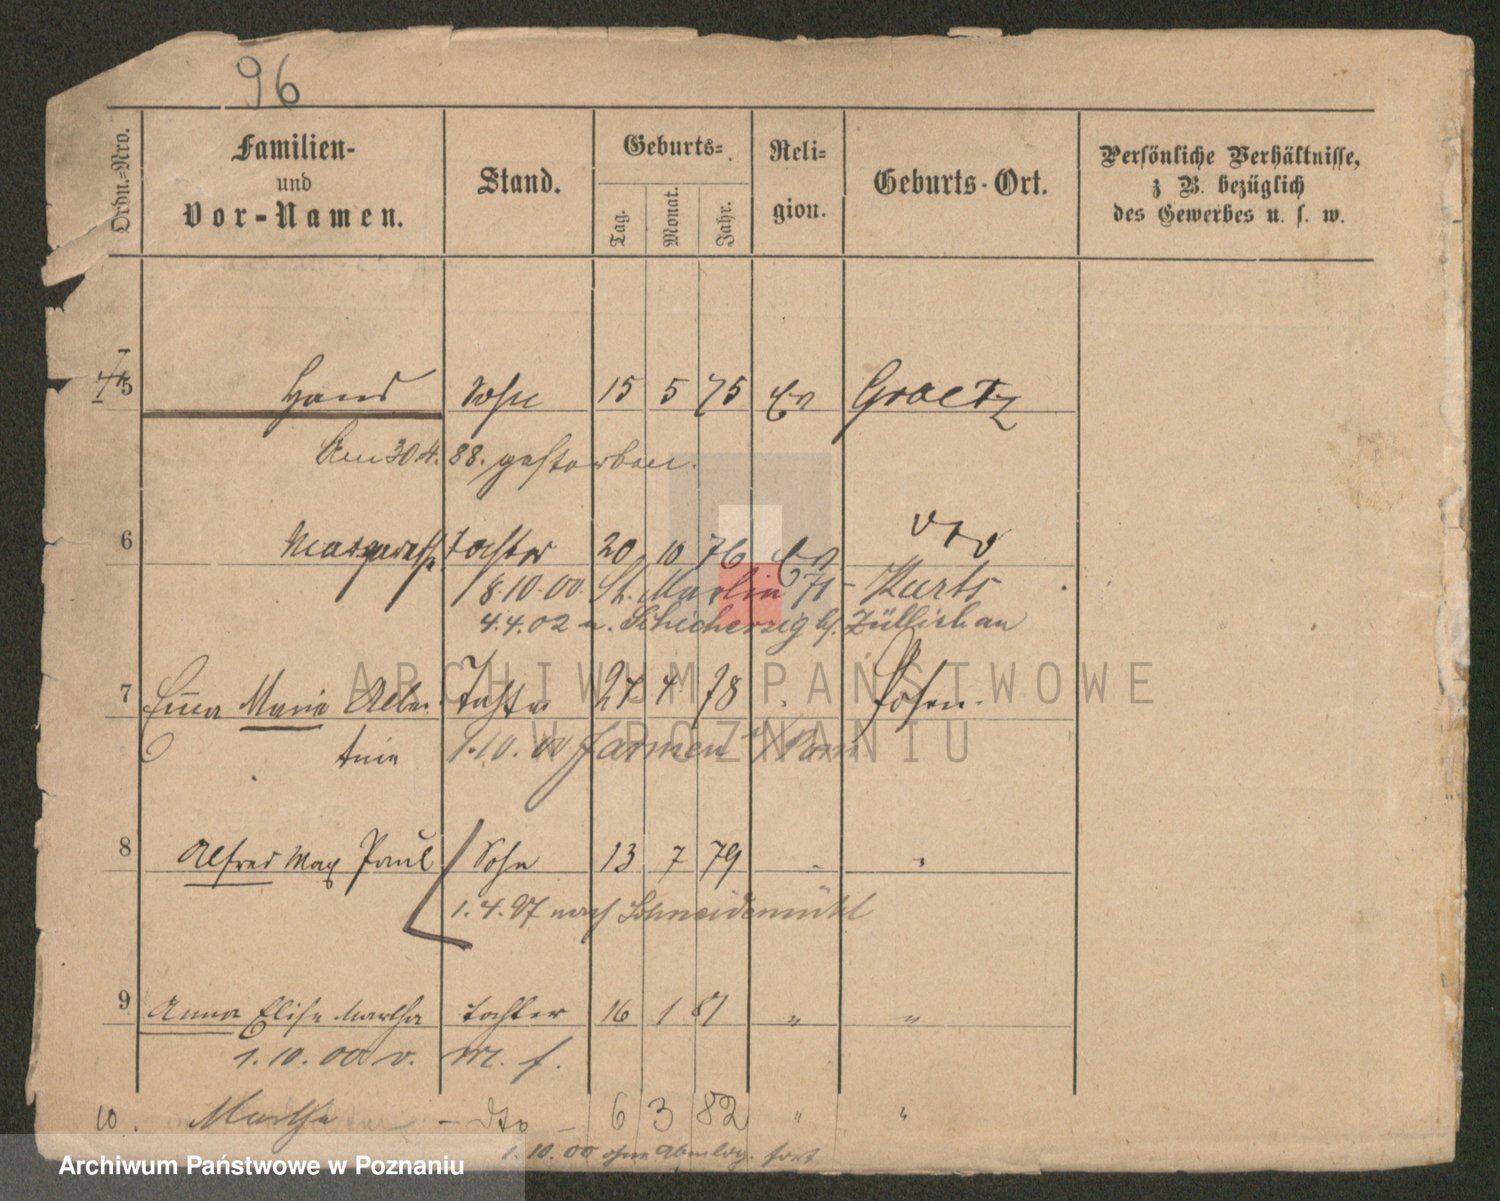 96
Ordn.-Nro.
Familien-
und
Vor-Namen.
Stand.
Geburts-
Tag.
Monat.
Jahr.
Reli-
gion.
Geburts-Ort.
Persönliche Verhältnisse,
z B. bezüglich
des Gewerbes u. s. w.
5 Hans Sohn 15 5 75 Ev Graetz
Am 30.4. 88. gestorben.
6 Margarethe Tochter 20 10 76 Ev dto
8.10.00. St. Martin 71 - Kurts
4.4.02 n. Schicherzig b/. Züllichau
7 Marie Tochter 27 4 78 Posen.
1.10.00
8 Alfred Max Paul Sohn 13 7 79 "
1.4.97 nach Schneidemühl
9 Anna Elise Martha Tochter 16 1 81 " "
1.10.00 v. M. f.
10. Martha - dto - 6 3 82 " "
1.10.00 ohne Abmldg. fort
ARCHIWUM PAŃSTWOWE
W POZNANIU
Archiwum Państwowe w Poznaniu